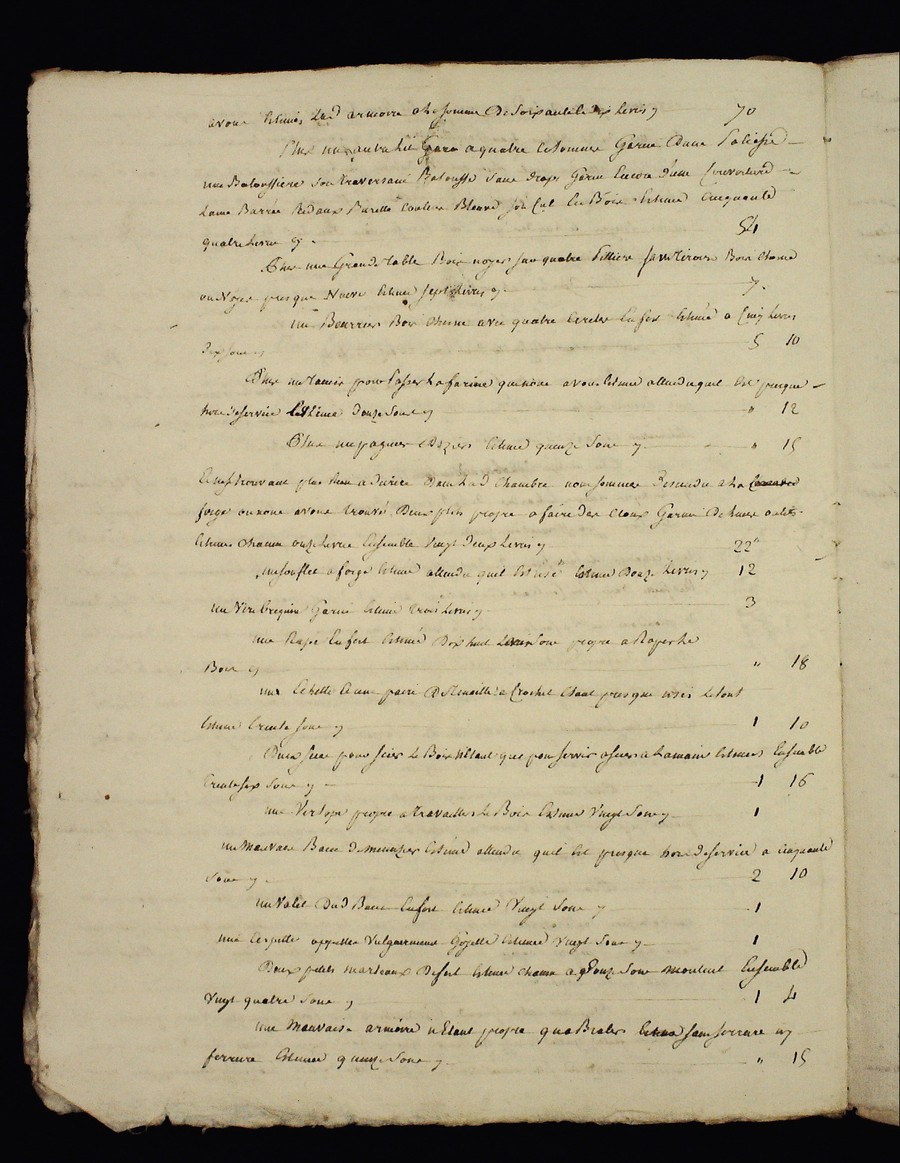 avons Estimés Lad armoire a la somme De Soixante Dix Livres 70
Plus un autre Lit a quatre Colonnes Garnie D'une Paliasse
une Baloussiere Son traversant Balousse Deux Draps Garni Encore d'une Couverture
Laine Barrée Rideaux Burette Couleur Bleuve Estimé Cinquante
quatre Livres 54
Plus une Grande table Bois noyer sur quatre Pilliers Bois
presque Neuve Estimée sept Livres 7
un Beurrier Bois Chesne avec quatre Cercles En fer Estimé a Cinq Livres
Dix Sous 5 10
Plus un Tamis pour Passer La farine que nous avons Estimé attendu quil Est presque
hors de service Douze Sous " 12
Plus un pagnier Estimé quinze Sous " 15
Et ne s'trouvant plus Rien a Decrire Dans Lad Chambre nous sommes Descendu a La
forge ou nous avons trouvé Deux propre a faire Des Cloux Garni De
Estimés Chacun onze Livres Ensemble Vingt Deux Livres 22 "
un souflet a forge Estimé attendu quil Est usé Estimé Douze Livres 12
un Virebrequin Garni Estimé trois Livres 3
une Rape En fert Estimé Dix huit Sous propre a Raper Le
Bois " 18
une Echelle Et une paire De Tenaille a Crochet Etant presque usés Le tout
Estimé trente Sous 1 10
Deux Scie pour Scier Le Bois N'Etant que pour servir a scier a La main Estimées Ensemble
trente six Sous 1 16
une Verlope propre a travailler Le Bois Estimé Vingt Sous 1
un Mauvais Banc de menuzier Estimé attendu quil Est presque hors de service a cinquante
Sous 2 10
un Valet Dud Banc En fert Estimé Vingt Sous 1
une appellée Vulgairement Estimée Vingt Sous 1
Deux petits marteaux De fert Estimé chacun a Douze Sous montent Ensemble
Vingt quatre Sous 1 4
une Mauvaise armoire n'Etant propre qu'a Bruler sans serrure ny
ferrure Estimée quinze Sous " 15